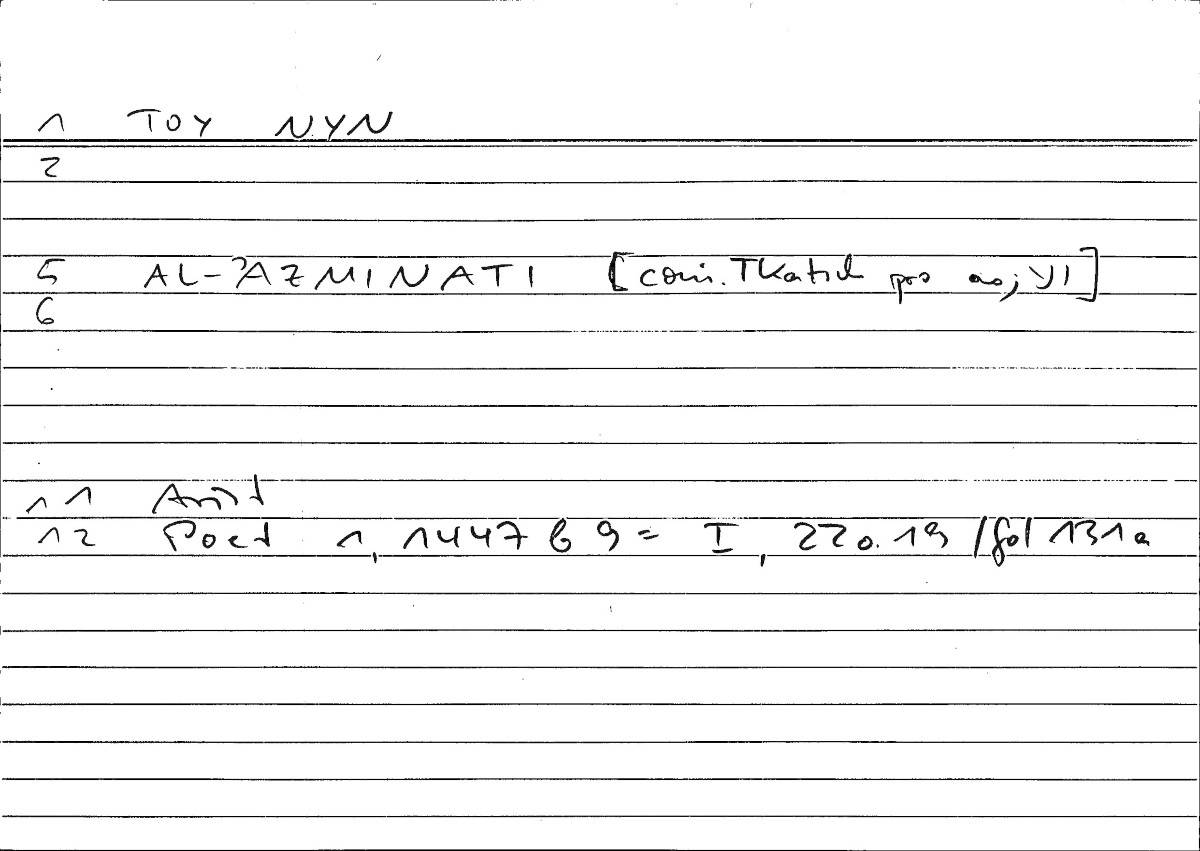 1 TOY NYN
2
5 AL-ʾAZMINATI [coni. Tkatsch pro
6
11 Arist
12 Poet 1, 1447 b 9 = I, 220.19 / fol 131a